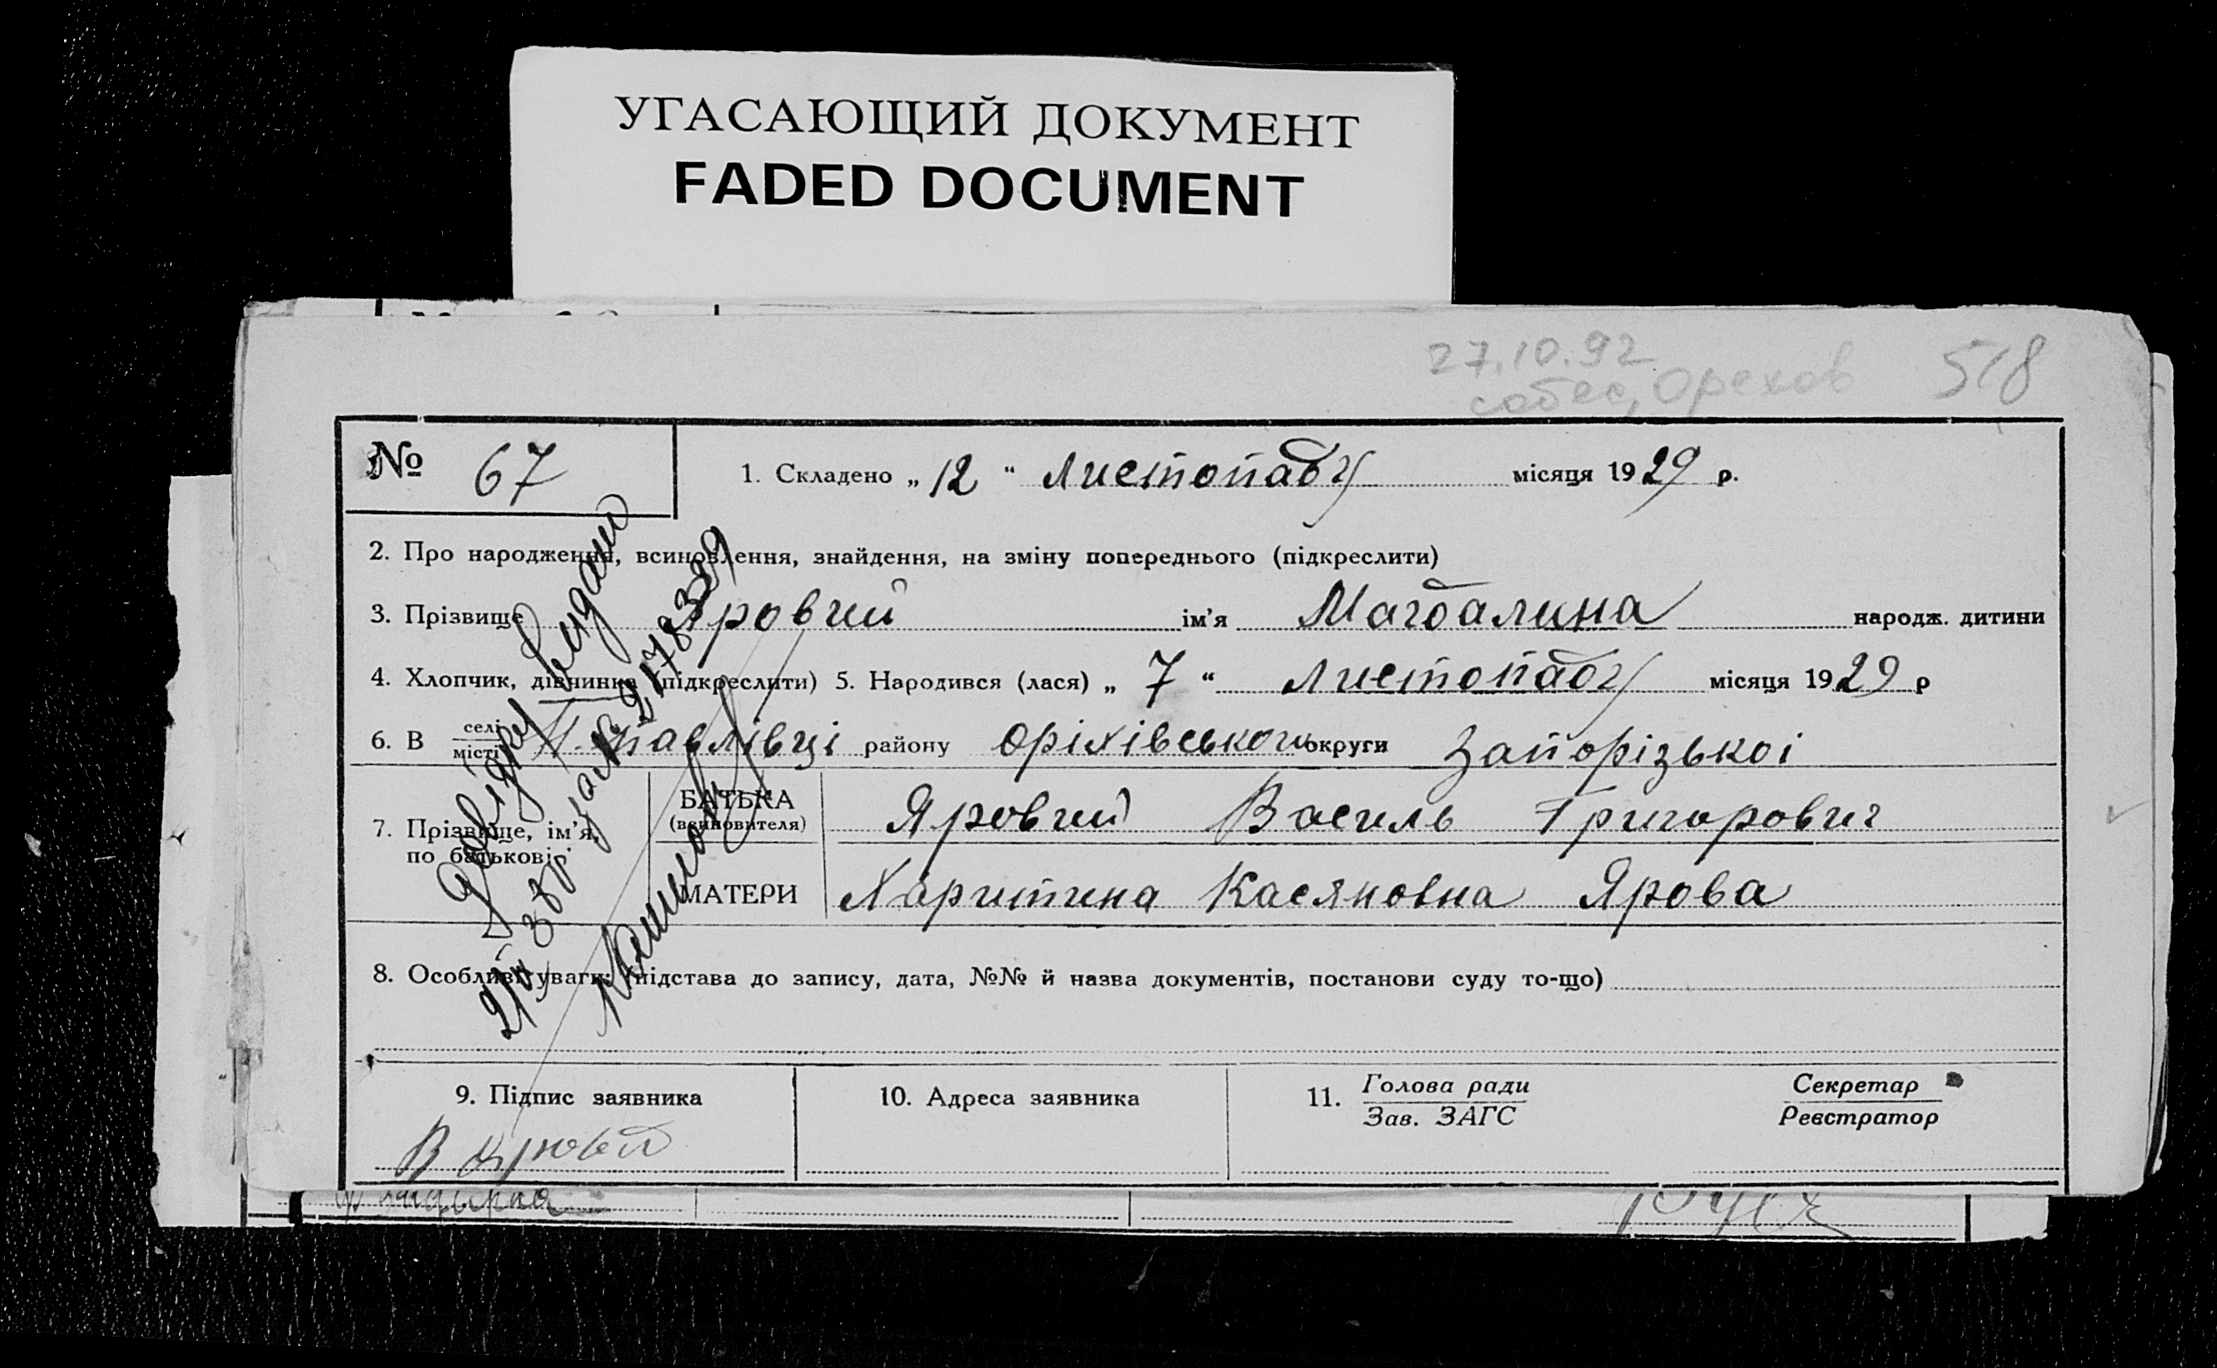 УГАСАЮЩИЙ ДОКУМЕНТ
FADED DOCUMENT
27.10.92
собес, Орехов 518
№ 67
1. Складено „ 12 “ листопаду місяця 1929 р.
2. Про народження, всиновлення, знайдення, на зміну попереднього (підкреслити)
3. Прізвище Яровий ім'я Магдалина народж. дитини
4. Хлопчик, дівчинка (підкреслити) 5. Народився (лася) „ 7 “ листопаду місяця 1929 р
6. В селі місті Н. Павлівці району Оріхівського округи Запорізькоі
7. Прізвище, ім'я, по батькові:
БАТЬКА (всиновителя) Яровий Василь Григорович
МАТЕРИ Харитина Касяновна Ярова
8. Особливі уваги: (підстава до запису, дата, №№ й назва документів, постанови суду то-що)
Довідку видано
9. Підпис заявника
В Яровой
10. Адреса заявника
11. Голова ради
Зав. ЗАГС
Секретар
Реєстратор